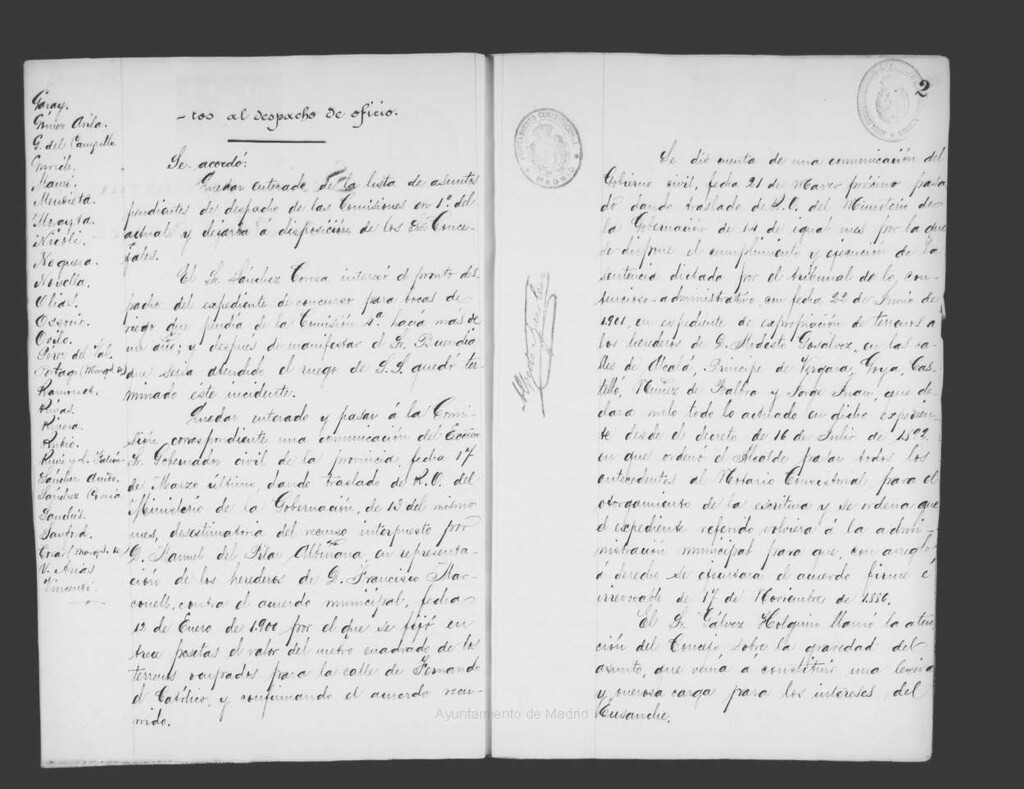 Garay.
Gómez Avila.
G. del Campillo.
Mazzi.
Mendieta.
Nicoli.
Noguera.
Novella.
Olias.
Ossorio.
Ovilo.
Ramonet.
Rivas.
Rivera.
Rubio.
Sánchez
Sánchez Covisa
Sanchis.
Santa
V. Arias
Vincenti
-tos al despacho de oficio.
Se acordó:
Quedar enterado de la lista de asuntos
pendientes de despacho de las Comisiones en 1º del
actual y dejarla á disposición de los Sres Conce-
jales.
El Sr. Sánchez Covisa interesó el pronto des-
pacho del expediente de concurso para bocas de
riego que pendía de la Comisión 4ª hacía más de
un año; y después de manifestar el Sr. Buendía
que sería atendido el ruego de S.S. quedó ter-
minado este incidente.
Quedar enterado y pasar á la Comi-
sión correspondiente una comunicación del Excmo
Sr. Gobernador civil de la provincia, fecha 17
de Marzo último, dando traslado de R.O. del
Ministerio de la Gobernación, de 13 del mismo
mes, desestimatoria del recurso interpuesto por
D. Manuel del Pilar Albiñana en representa-
ción de los herederos de D. Francisco Mar-
conell, contra el acuerdo municipal, fecha
12 de Enero de 1.900 por el que se fijó en
trece pesetas el valor del metro cuadrado de los
terrenos ocupados para la calle de Fernando
el Católico, y confirmando el acuerdo recu-
rrido.
AYUNTAMIENTO CONSTITUCIONAL
MADRID
2
Se dió cuenta de una comunicación del
Gobierno civil, fecha 21 de Marzo próximo pasa-
do dando traslado de R.O. del Ministerio de
la Gobernación de 14 de igual mes por la que
se dispone el cumplimiento y ejecución de la
sentencia dictada por el tribunal de lo con-
tencioso-administrativo, con fecha 22 de Junio de
1.901, en expediente de expropiación de terrenos á
los herederos de D. Modesto Gosálvez, en las ca-
lles de Alcalá, Príncipe de Vergara, Goya, Cas-
telló, Núñez de Balboa y Jorge Juan, que de-
clara nulo todo lo actuado en dicho expedien-
te desde el decreto de 16 de Julio de 1892
en que ordenó el Alcalde pasar todos los
antecedentes al Notario Consistorial para el
otorgamiento de la escritura y se ordena que
el expediente referido volviera á la admi-
nistración municipal para que, con arreglo
á derecho se ejecutara el acuerdo firme é
irrevocable de 17 de Noviembre de 1886.
El Sr. Gálvez Holguín llamó la aten-
ción del Concejo sobre la gravedad del
asunto, que venía á constituir una
y onerosa carga para los intereses del
Ensanche.
Ayuntamiento de Madrid